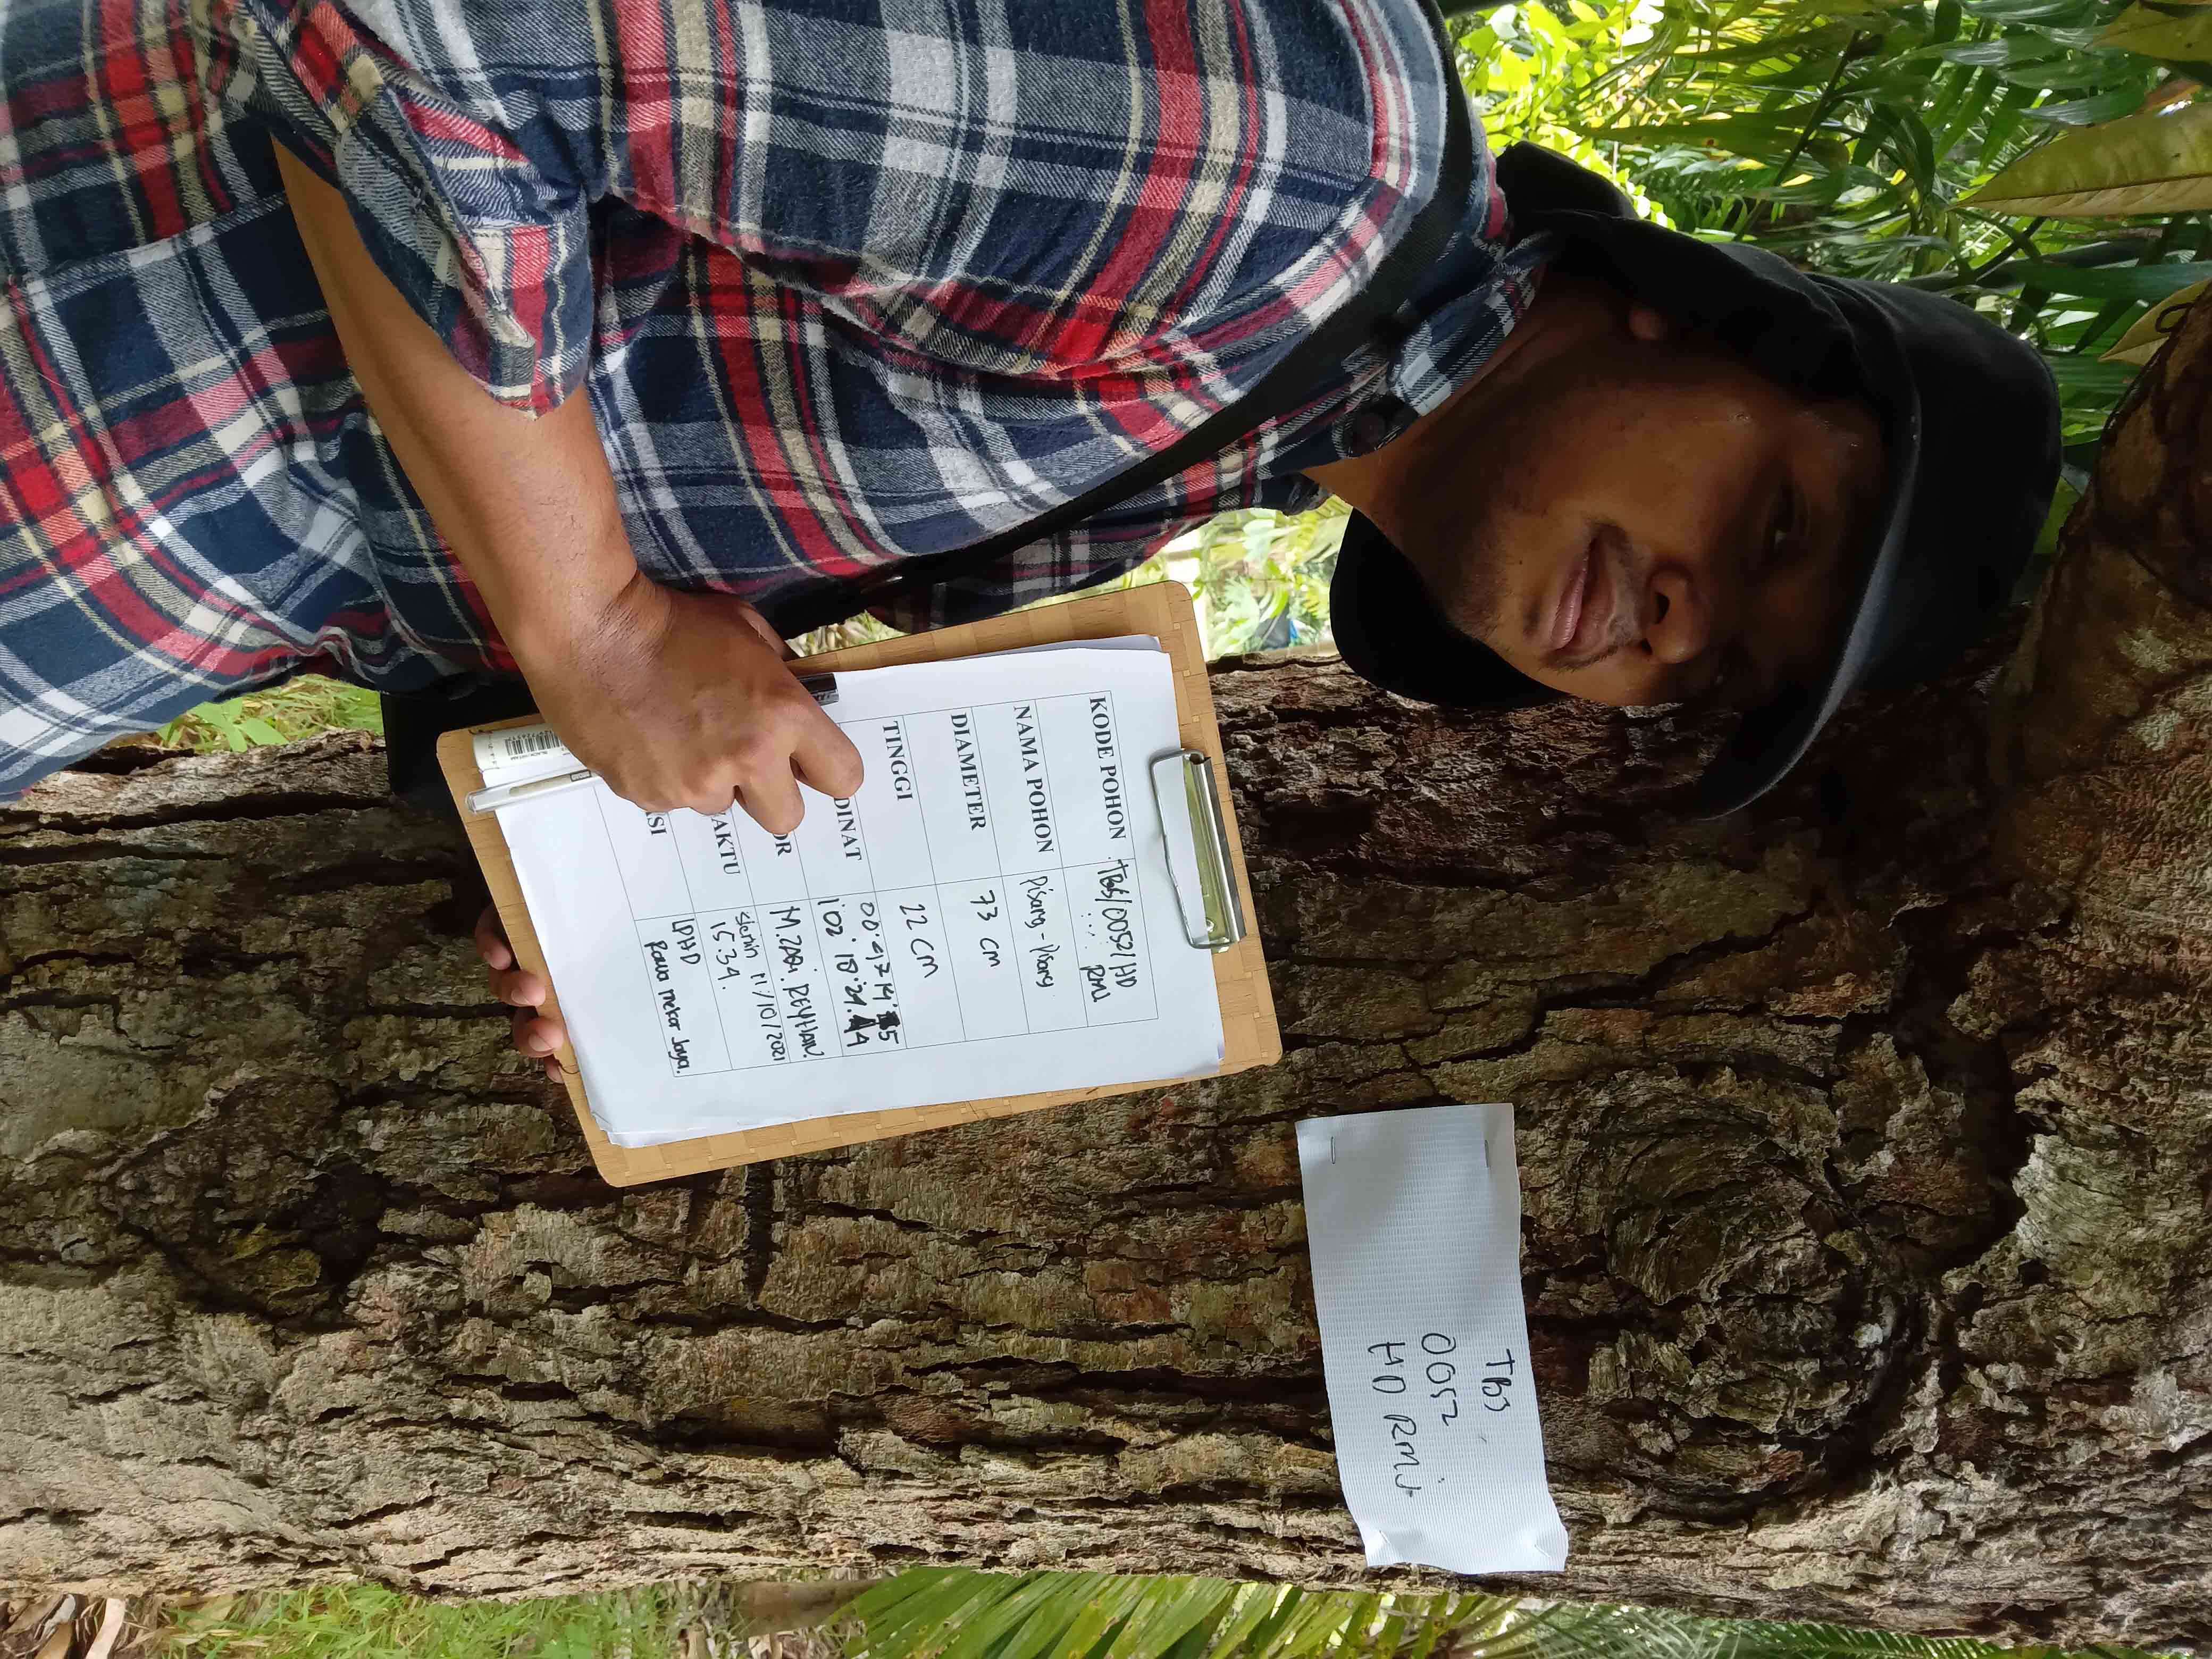 TBS
0052
HD RMJ
KODE POHON TBS/0052/HD
RMJ
NAMA POHON Pisang-Pisang
DIAMETER 73 CM
TINGGI 22 CM
DINAT
102° 18' 29.
OR M. ZAQI. REYHAN.
AKTU Senin 11/10/2021
15.34.
ASI LPHD
Rawa mekar Jaya.